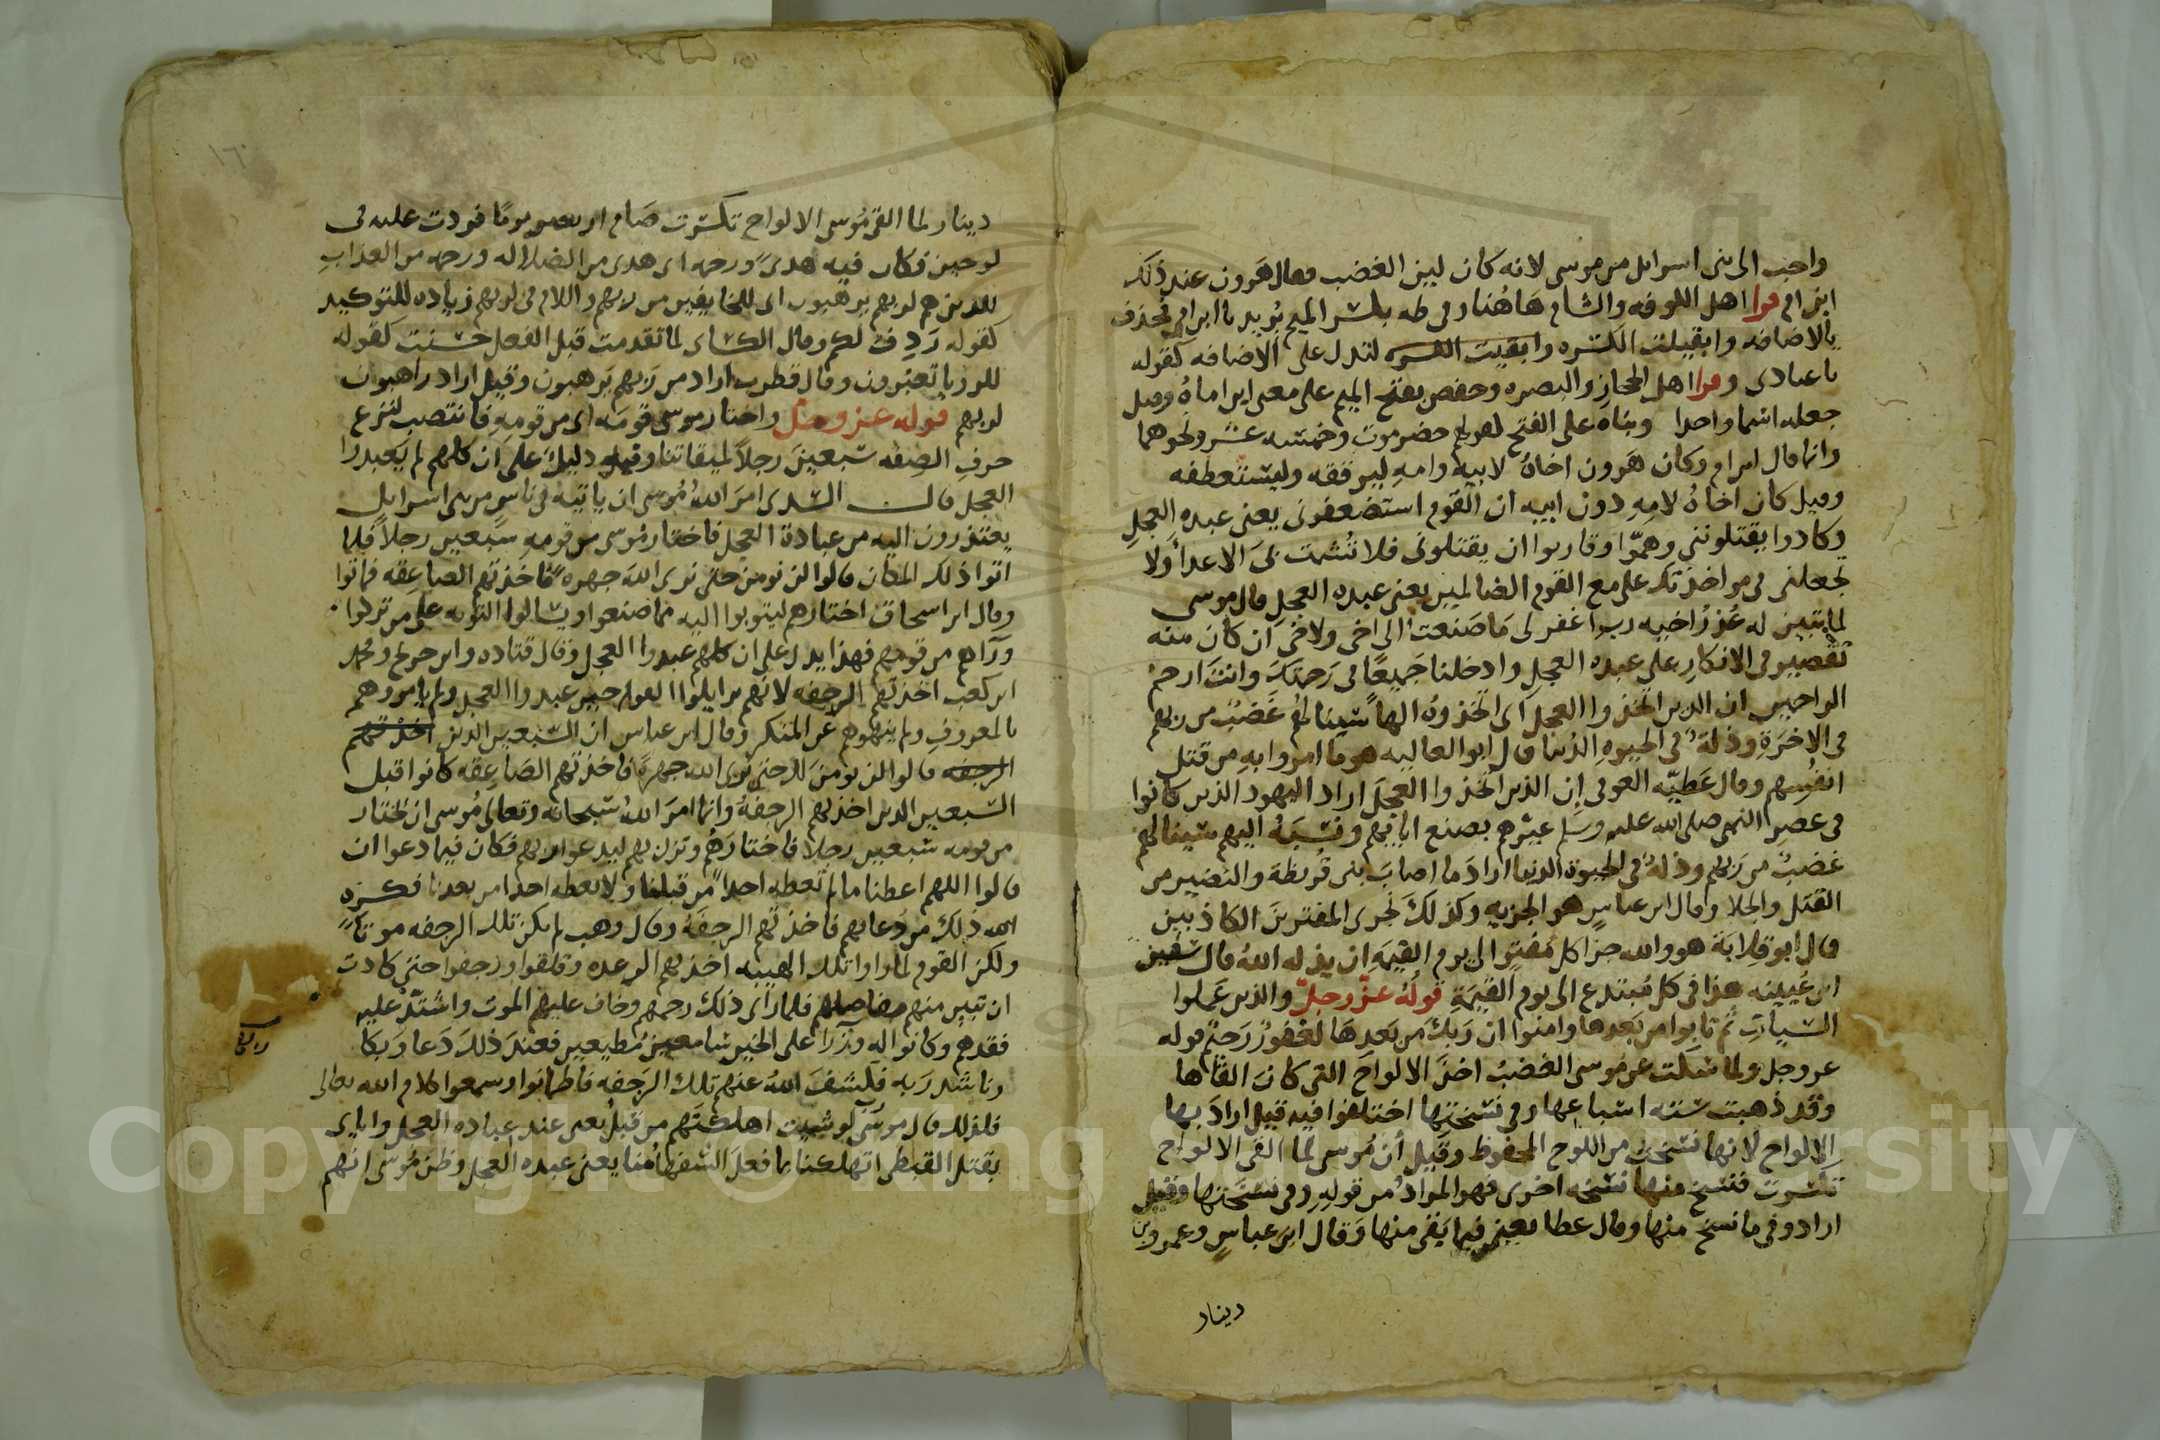 واحب الى بنى اسرايل من موسى لانه كان لين الغضب فقال هرون عند ذلك
ابن ام قرا اهل الكوفه والشام هاهنا وفى طه بكسر الميم يريد يا ابن امى فحذف
يا الاضافه وابقيت الكسره لتدل على الاضافه كقوله
يا عبادى وقرا اهل الحجاز والبصره وحفص بفتح الميم على معنى ابن اماه وقيل
جعله اسما واحدا وبناه على الفتح كقولهم حضرموت وخمسه عشر ونحوهما
وانما قال ابن ام وكان هرون اخاه لابيه وامه ليرققه وليستعطفه
وقيل كان اخاه لامه دون ابيه ان القوم استضعفونى يعنى عبده العجل
وكادوا يقتلوننى وهموا وقاربوا ان يقتلونى فلا تشمت بى الاعدا ولا
تجعلنى فى مواخذتك على مع القوم الظالمين يعنى عبده العجل قال موسى
لما تبين له عذر اخيه رب اغفر لى ما صنعت الى اخى ولاخى ان كان منه
تقصير فى الانكار على عبده العجل وادخلنا جميعا فى رحمتك وانت ارحم
الراحمين ان الذين اتخذوا العجل اى اتخذوه الها سينالهم غضب من ربهم
فى الاخرة وذلة فى الحيوه الدنيا قال ابو العاليه هو ما امروا به من قتل
انفسهم وقال عطيه العوفى ان الذين اتخذوا العجل اراد اليهود الذين كانوا
فى عصر النبى صلى الله عليه وسلم عيرهم بصنع ابايهم ونسبه اليهم سينالهم
غضب من ربهم وذلة فى الحيوة الدنيا اراد ما اصاب بنى قريظة والنضير من
القتل والجلا وقال ابن عباس هو الجزيه وكذلك نجزى المفترين الكاذبين
قال ابو قلابة هو والله جزا كل مفتر الى يوم القيمة ان يذله الله قال سفين
ابن عيينه هذا فى كل مبتدع الى يوم القيمة قوله عز وجل والذين عملوا
السيات ثم تابوا من بعدها وامنوا ان ربك من بعدها لغفور رحيم قوله
عز وجل ولما سكت عن موسى الغضب اخذ الالواح التى كان القاها
وقد ذهبت ستة اسباعها وفى نسختها اختلفوا فيه قيل اراد بها
الالواح لانها نسخت من اللوح المحفوظ وقيل ان موسى لما القى الالواح
تكسرت فنسخ منها نسخه اخرى فهو المراد من قوله وفى نسختها وقيل
اراد وفى ما نسخ منها وقال عطا يعنى فيما بقى منها وقال ابن عباس وعمرو بن
دينار
١٦٠
دينار لما القى موسى الالواح تكسرت صام اربعين يوما فردت عليه فى
لوحين فكان فيه هدى ورحمه اى هدى من الضلاله ورحمه من العذاب
للذين هم لربهم يرهبون اى للخايفين من ربهم واللام فى لربهم زياده للتوكيد
كقوله ردف لكم وقال الكساى لما تقدمت قبل الفعل حسنت كقوله
للرويا تعبرون وقال قطرب اراد من ربهم يرهبون وقيل اراد راهبون
لربهم قوله عز وجل واختار موسى قومه اى من قومه فانتصب لنزع
حرف الصفه سبعين رجلا لميقاتنا وفيه دليل على ان كلهم لم يعبدوا
العجل قال السدى امر الله موسى ان ياتيه فى ناس من بنى اسرايل
يعتذرون اليه من عبادة العجل فاختار موسى من قومه سبعين رجلا فلما
اتوا ذلك المكان قالوا لن نومن حتى نرى الله جهره فاخذتهم الصاعقه فماتوا
وقال ابن اسحاق اختارهم ليتوبوا اليه مما صنعوا ويسالوا التوبه على من تركوا
وراهم من قومهم فهذا يدل على ان كلهم عبدوا العجل وقال قتاده وابن جريج ومحمد
ابن كعب اخذتهم الرجفه لانهم لم يزايلوا القوم حين عبدوا العجل ولم يامروهم
بالمعروف ولم ينهوهم عن المنكر وقال ابن عباس ان السبعين الذين اخذتهم
الرجفه قالوا لن نومن لك حتى نرى الله جهرة فاخذتهم الصاعقه كانوا قبل
السبعين الذين اخذتهم الرجفة وانما امر الله سبحانه وتعالى موسى ان يختار
من قومه سبعين رجلا فاختارهم وبرز بهم ليدعوا ربهم فكان فيما دعوا ان
قالوا اللهم اعطنا ما لم تعطه احدا من قبلنا ولا تعطه احدا من بعدنا فكره
الله ذلك من دعايهم فاخذتهم الرجفة وقال وهب لم يكن تلك الرجفه موتا
ولكن القوم لما راوا تلك الهيبه اخذتهم الرعده وقلقوا ورجفوا حتى كادت
ان تبين منهم مفاصلهم فلما راى ذلك رحمهم وخاف عليهم الموت واشتد عليه
فقدهم وكانوا له وزرا على الخير سامعين مطيعين فعند ذلك دعا وبكا
وناشد ربه فكشف الله عنهم تلك الرجفه فاطمانوا وسمعوا كلام الله تعالى
فلذلك قال موسى لو شيت اهلكتهم من قبل يعنى عند عباده العجل واياى
بقتل القبطى اتهلكنا بما فعل السفها منا يعنى عبده العجل وظن موسى انهم
Copyright © King Saud University